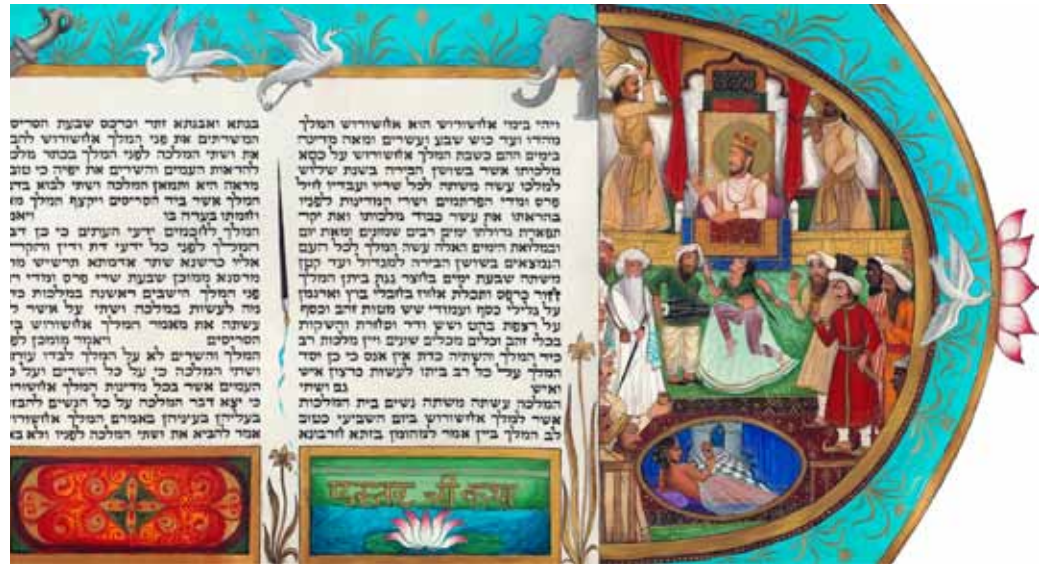 ויהי בימי אחשורוש הוא אחשורוש המלך
מהדו ועד כוש שבע ועשרים ומאה מדינה
בימים ההם כשבת המלך אחשורוש על כסא
מלכותו אשר בשושן הבירה בשנת שלוש
למלכו עשה משתה לכל שריו ועבדיו חיל
פרס ומדי הפרתמים ושרי המדינות לפניו
בהראתו את עשר כבוד מלכותו ואת יקר
תפארת גדולתו ימים רבים שמונים ומאת יום
ובמלואת הימים האלה עשה המלך לכל העם
הנמצאים בשושן הבירה למגדול ועד קטן
משתה שבעת ימים בחצר גנת ביתן המלך
חור כרפס ותכלת אחוז בחבלי בוץ וארגמן
על גלילי כסף ועמודי שש מטות זהב וכסף
על רצפת בהט ושש ודר וסחרת והשקות
בכלי זהב וכלים מכלים שונים ויין מלכות רב
כיד המלך והשתיה כדת אין אנס כי כן יסד
המלך על כל רב ביתו לעשות כרצון איש
ואיש גם ושתי
המלכה עשתה משתה נשים בית המלכות
אשר למלך אחשורוש ביום השביעי כטוב
לב המלך ביין אמר למהומן בזתא חרבונא
בגתא ואבגתא זתר וכרכס שבעת הסריס
המשרתים את פני המלך אחשורוש להב
את ושתי המלכה לפני המלך בכתר מלכ
להראות העמים והשרים את יפיה כי טוב
מראה היא ותמאן המלכה ושתי לבוא בדב
המלך אשר ביד הסריסים ויקצף המלך מא
וחמתו בערה בו ויאמ
המלך לחכמים ידעי העתים כי כן דב
המלך לפני כל ידעי דת ודין והקר
אליו כרשנא שתר אדמתא תרשיש מר
מרסנא ממוכן שבעת שרי פרס ומדי ר
פני המלך הישבים ראשנה במלכות כד
מה לעשות במלכה ושתי על אשר ל
עשתה את מאמר המלך אחשורוש בי
הסריסים ויאמר מומכן לפ
המלך והשרים לא על המלך לבדו עות
ושתי המלכה כי על כל השרים ועל כ
העמים אשר בכל מדינות המלך אחשור
כי יצא דבר המלכה על כל הנשים להבז
בעליהן בעיניהן באמרם המלך אחשורו
אמר להביא את ושתי המלכה לפניו ולא בא